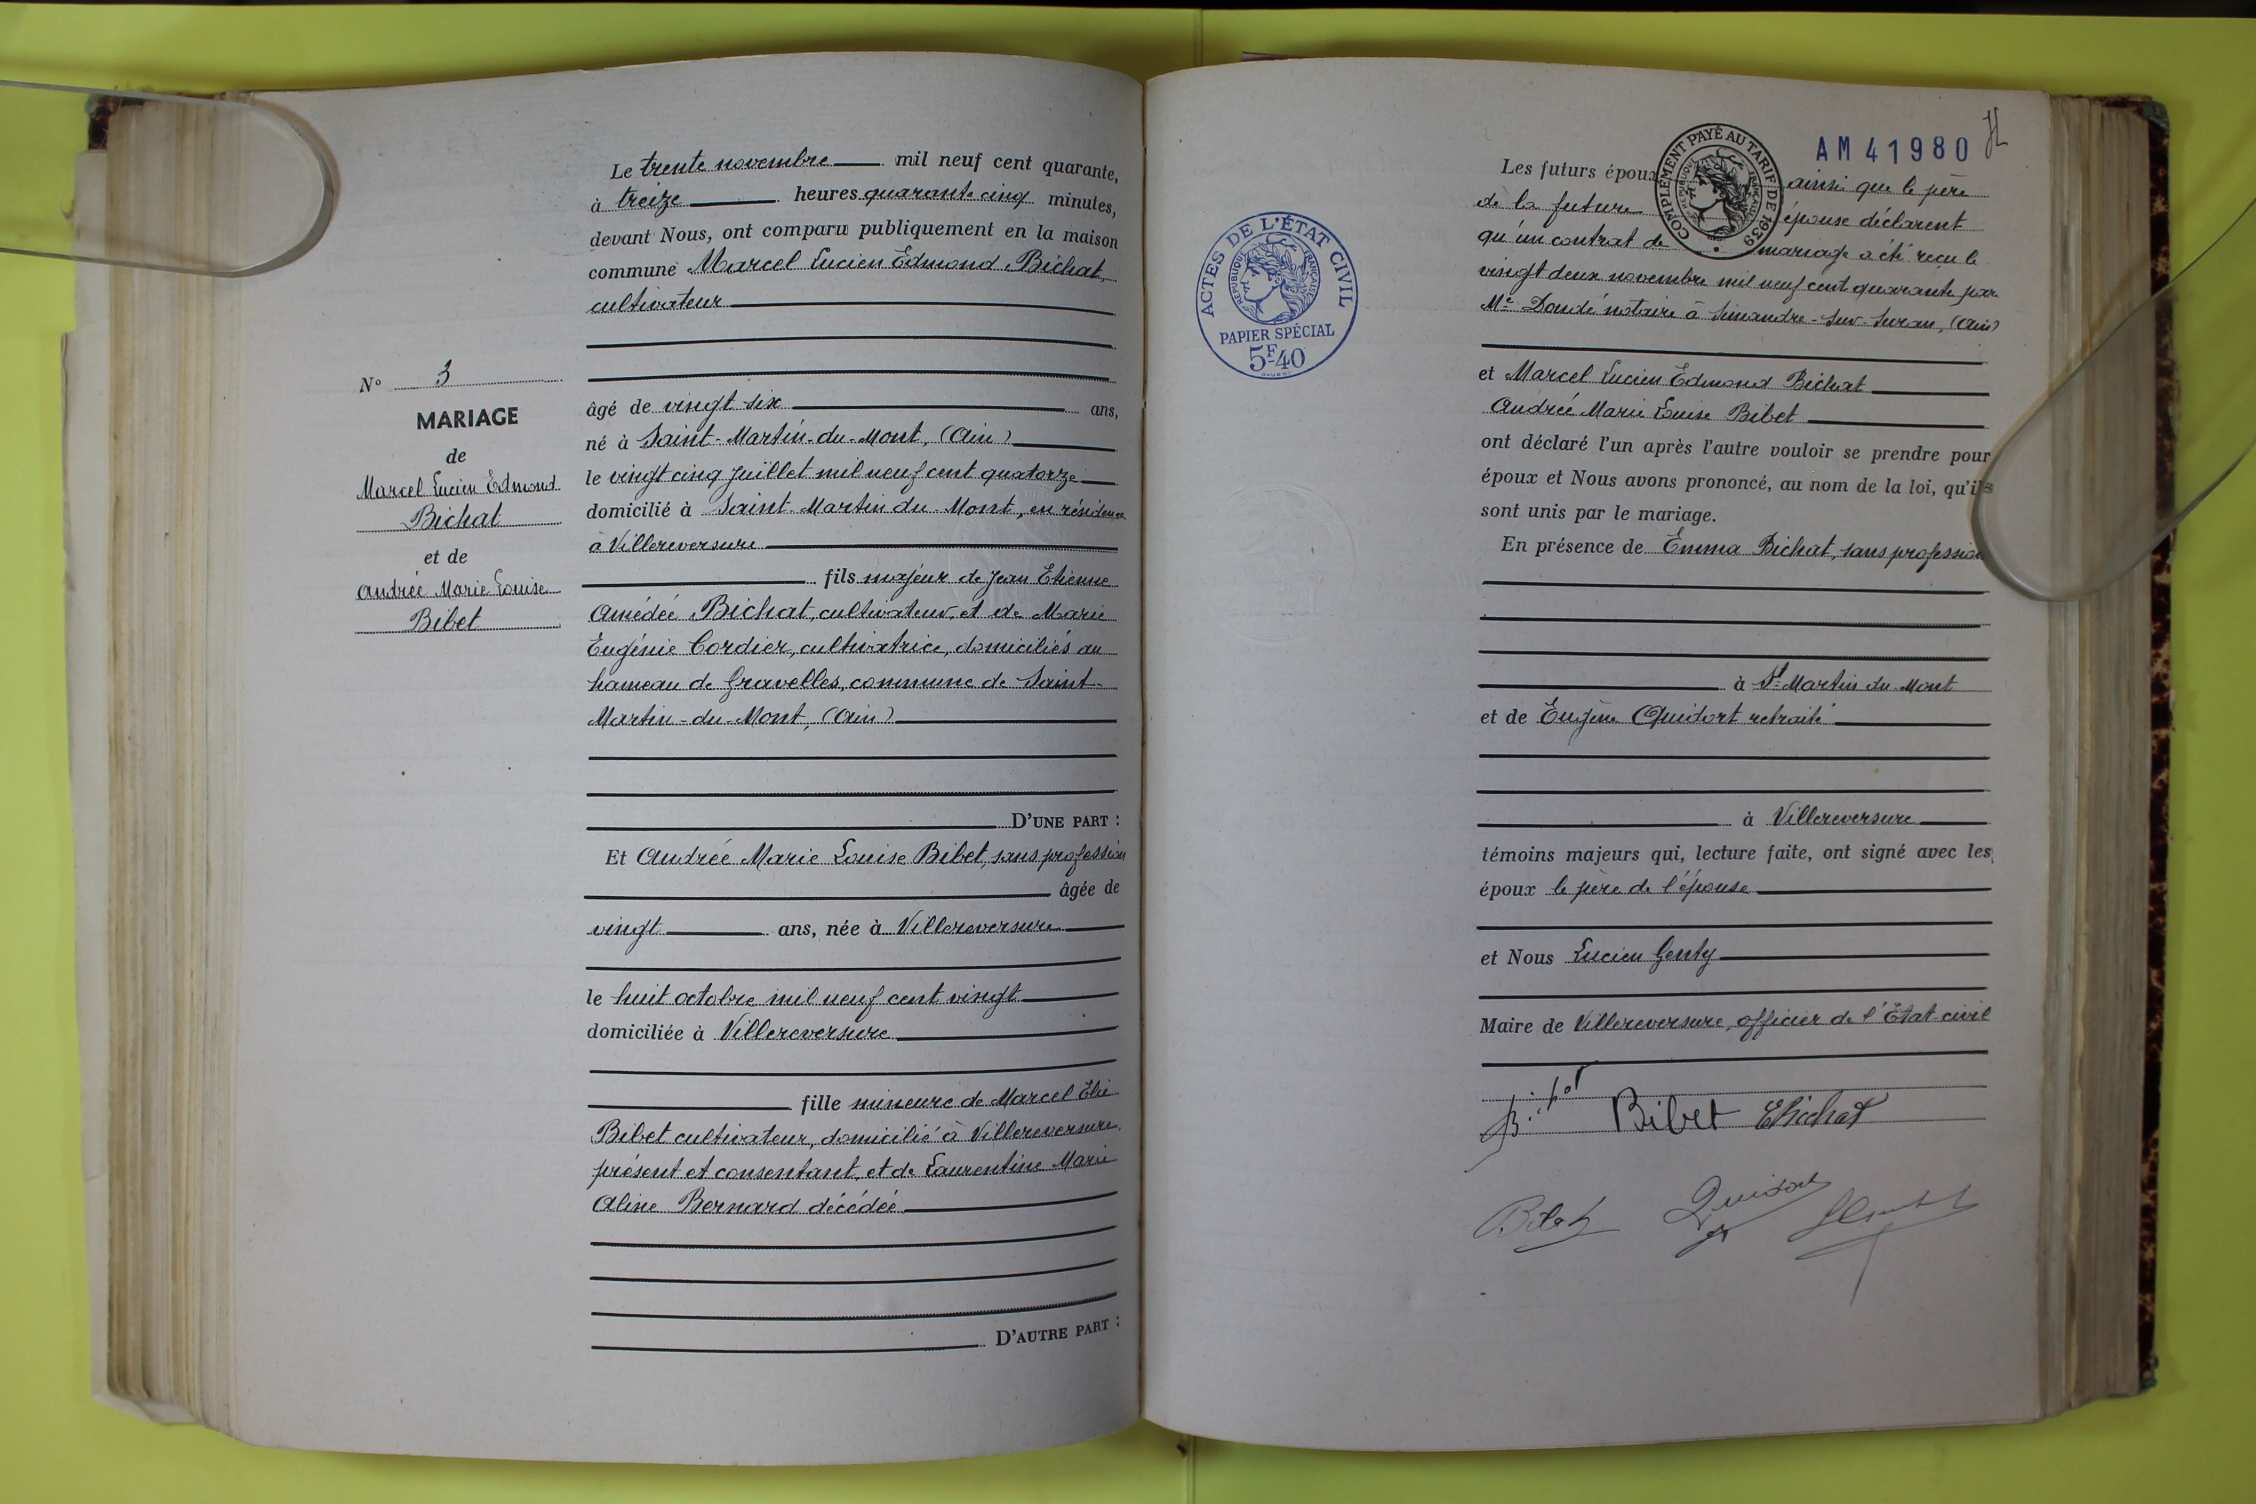 N° 3
MARIAGE
de
Marcel Lucien Edmond
Bichat
et de
Andrée Marie Louise
Bibet
Le trente novembre mil neuf cent quarante,
à treize heures quarante cinq minutes,
devant Nous, ont comparu publiquement en la maison
commune Marcel Lucien Edmond Bichat,
cultivateur
âgé de vingt six ans,
né à Saint-Martin-du-Mont, (Ain)
le vingt cinq juillet mil neuf cent quatorze
domicilié à Saint-Martin du Mont, en résidence
à Villereversure
fils majeur de Jean Etienne
Amédée Bichat, cultivateur, et de Marie
Eugénie Cordier, cultivatrice, domiciliés au
hameau de Gravelles, commune de Saint-
Martin-du-Mont, (Ain)
D'UNE PART :
Et Andrée Marie Louise Bibet, sans profession
âgée de
vingt ans, née à Villereversure
le huit octobre mil neuf cent vingt
domiciliée à Villereversure
fille mineure de Marcel Elie
Bibet cultivateur, domicilié à Villereversure,
présent et consentant, et de Laurentine Marie
Aline Bernard décédée
D'AUTRE PART :
AM 41980
COMPLEMENT PAYÉ AU TARIF DE 1939
ACTES DE L'ÉTAT CIVIL
REPUBLIQUE FRANÇAISE
PAPIER SPÉCIAL
5F40
Les futurs époux ainsi que le père
de la future épouse déclarent
qu'un contrat de mariage a été reçu le
vingt deux novembre mil neuf cent quarante par
Me Doudé notaire à Simandre-sur-Suran, (Ain)
et Marcel Lucien Edmond Bichat
Andrée Marie Louise Bibet
ont déclaré l'un après l'autre vouloir se prendre pour
époux et Nous avons prononcé, au nom de la loi, qu'ils
sont unis par le mariage.
En présence de Emma Bichat, sans profession
à St Martin du Mont
et de Eugène Quidort retraité
à Villereversure
témoins majeurs qui, lecture faite, ont signé avec les
époux le père de l'épouse
et Nous Lucien Genty
Maire de Villereversure, officier de l'Etat civil
Bibet EBichat
Bibet Quidort